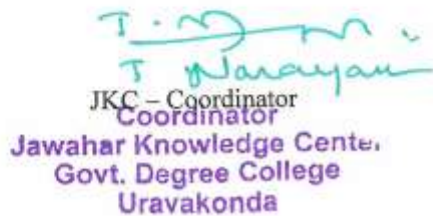 T. Narayan
JKC – Coordinator
Coordinator
Jawahar Knowledge Center
Govt. Degree College
Uravakonda